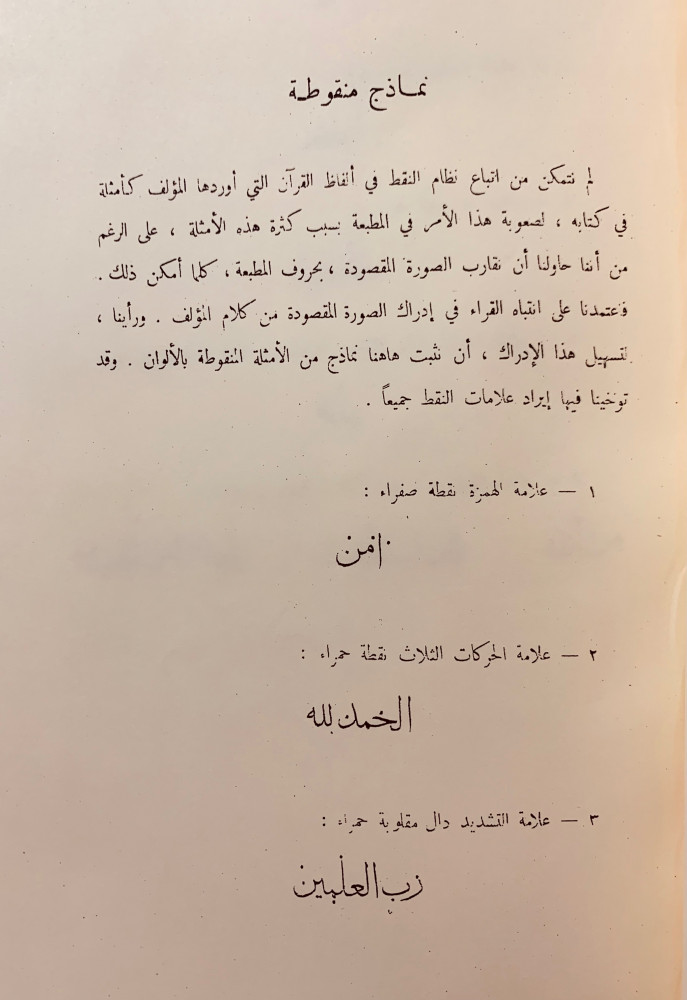 نماذج منقوطة
لم نتمكن من اتباع نظام النقط في ألفاظ القرآن التي أوردها المؤلف كأمثلة
في كتابه ، لصعوبة هذا الأمر في المطبعة بسبب كثرة هذه الأمثلة ، على الرغم
من أننا حاولنا أن نقارب الصورة المقصودة ، بحروف المطبعة ، كلما أمكن ذلك .
فاعتمدنا على انتباه القراء في إدراك الصورة المقصودة من كلام المؤلف . ورأينا ،
لتسهيل هذا الإدراك ، أن نثبت هاهنا نماذج من الأمثلة المنقوطة بالألوان . وقد
توخينا فيها إيراد علامات النقط جميعاً .
١ — علامة الهمزة نقطة صفراء :
٢ — علامة الحركات الثلاث نقطة حمراء :
الحمد لله
٣ — علامة التشديد دال مقلوبة حمراء :
رب العلمين